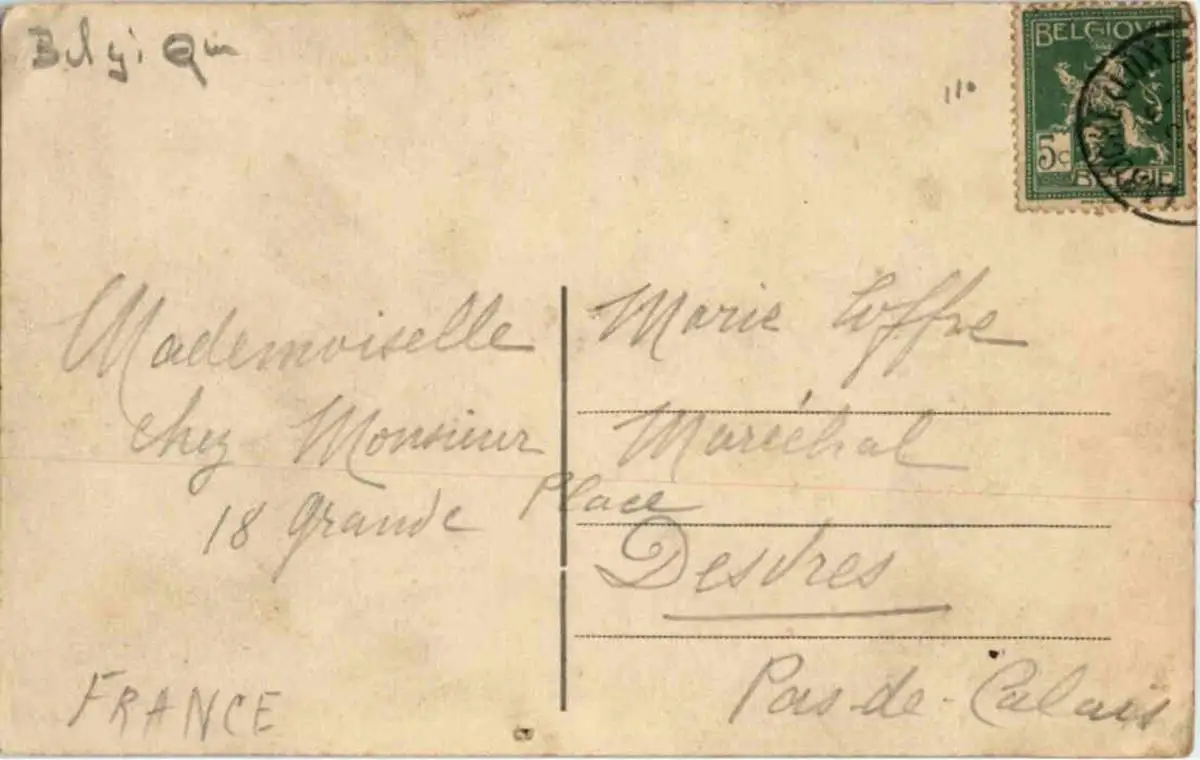 Belgiqu
110
BELGIQUE
5c
BELGIË
Mademoiselle Marie Loffre
chez Monsieur Maréchal
18 grande Place
Desvres
Pas-de-Calais
FRANCE